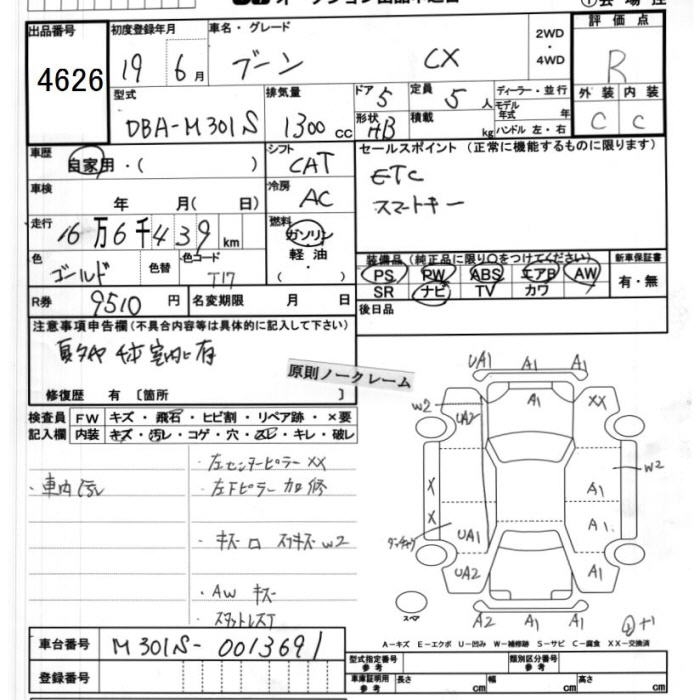 出品番号
4626
初度登録年月
19 6月
車名・グレード
ブーン CX
2WD
・
4WD
評価点
R
型式
DBA-M301S
排気量
1300cc
ドア
5
定員
5人
ディーラー・並行
モデル年式 年
ハンドル 左・右
形状
HB
積載
kg
外装 内装
C C
車歴
自家用・( )
シフト
CAT
車検
年 月( 日)
冷房
AC
走行
16万6千439km
燃料
ガソリン
軽油
・
( )
色
ゴールド
色替
色コード
T17
R券
9510円
名変期限 月 日
セールスポイント(正常に機能するものに限ります)
ETC
スマートキー
装備品(純正品に限り○をつけてください)
PS PW ABS エアB AW
SR ナビ TV カワ
新車保証書
有・無
後日品
注意事項申告欄(不具合内容等は具体的に記入して下さい)
夏タヤ 4本 室内に有
修復歴 有〔箇所 〕
原則ノークレーム
検査員 FW キズ・飛石・ヒビ割・リペア跡・×要
記入欄 内装 キズ・汚レ・コゲ・穴・スレ・キレ・破レ
・車内汚レ
・左センターピラー XX
・左下ピラー カロ修
・キズ ロ スリキズ W2
・AW キズ
・スタットレスT
UA1 A1 A1
W2 UA2 A1 XX
W2
X A1
X A1
UA1
UA2 A1
スペア
A2 A1 A1
A-キズ E-エクボ U-凹み W-補修跡 S-サビ C-腐食 XX-交換済
車台番号
M301S-0013691
登録番号
型式指定番号
参考
類別区分番号
参考
車庫証明用
参考
長さ cm 幅 cm 高さ cm